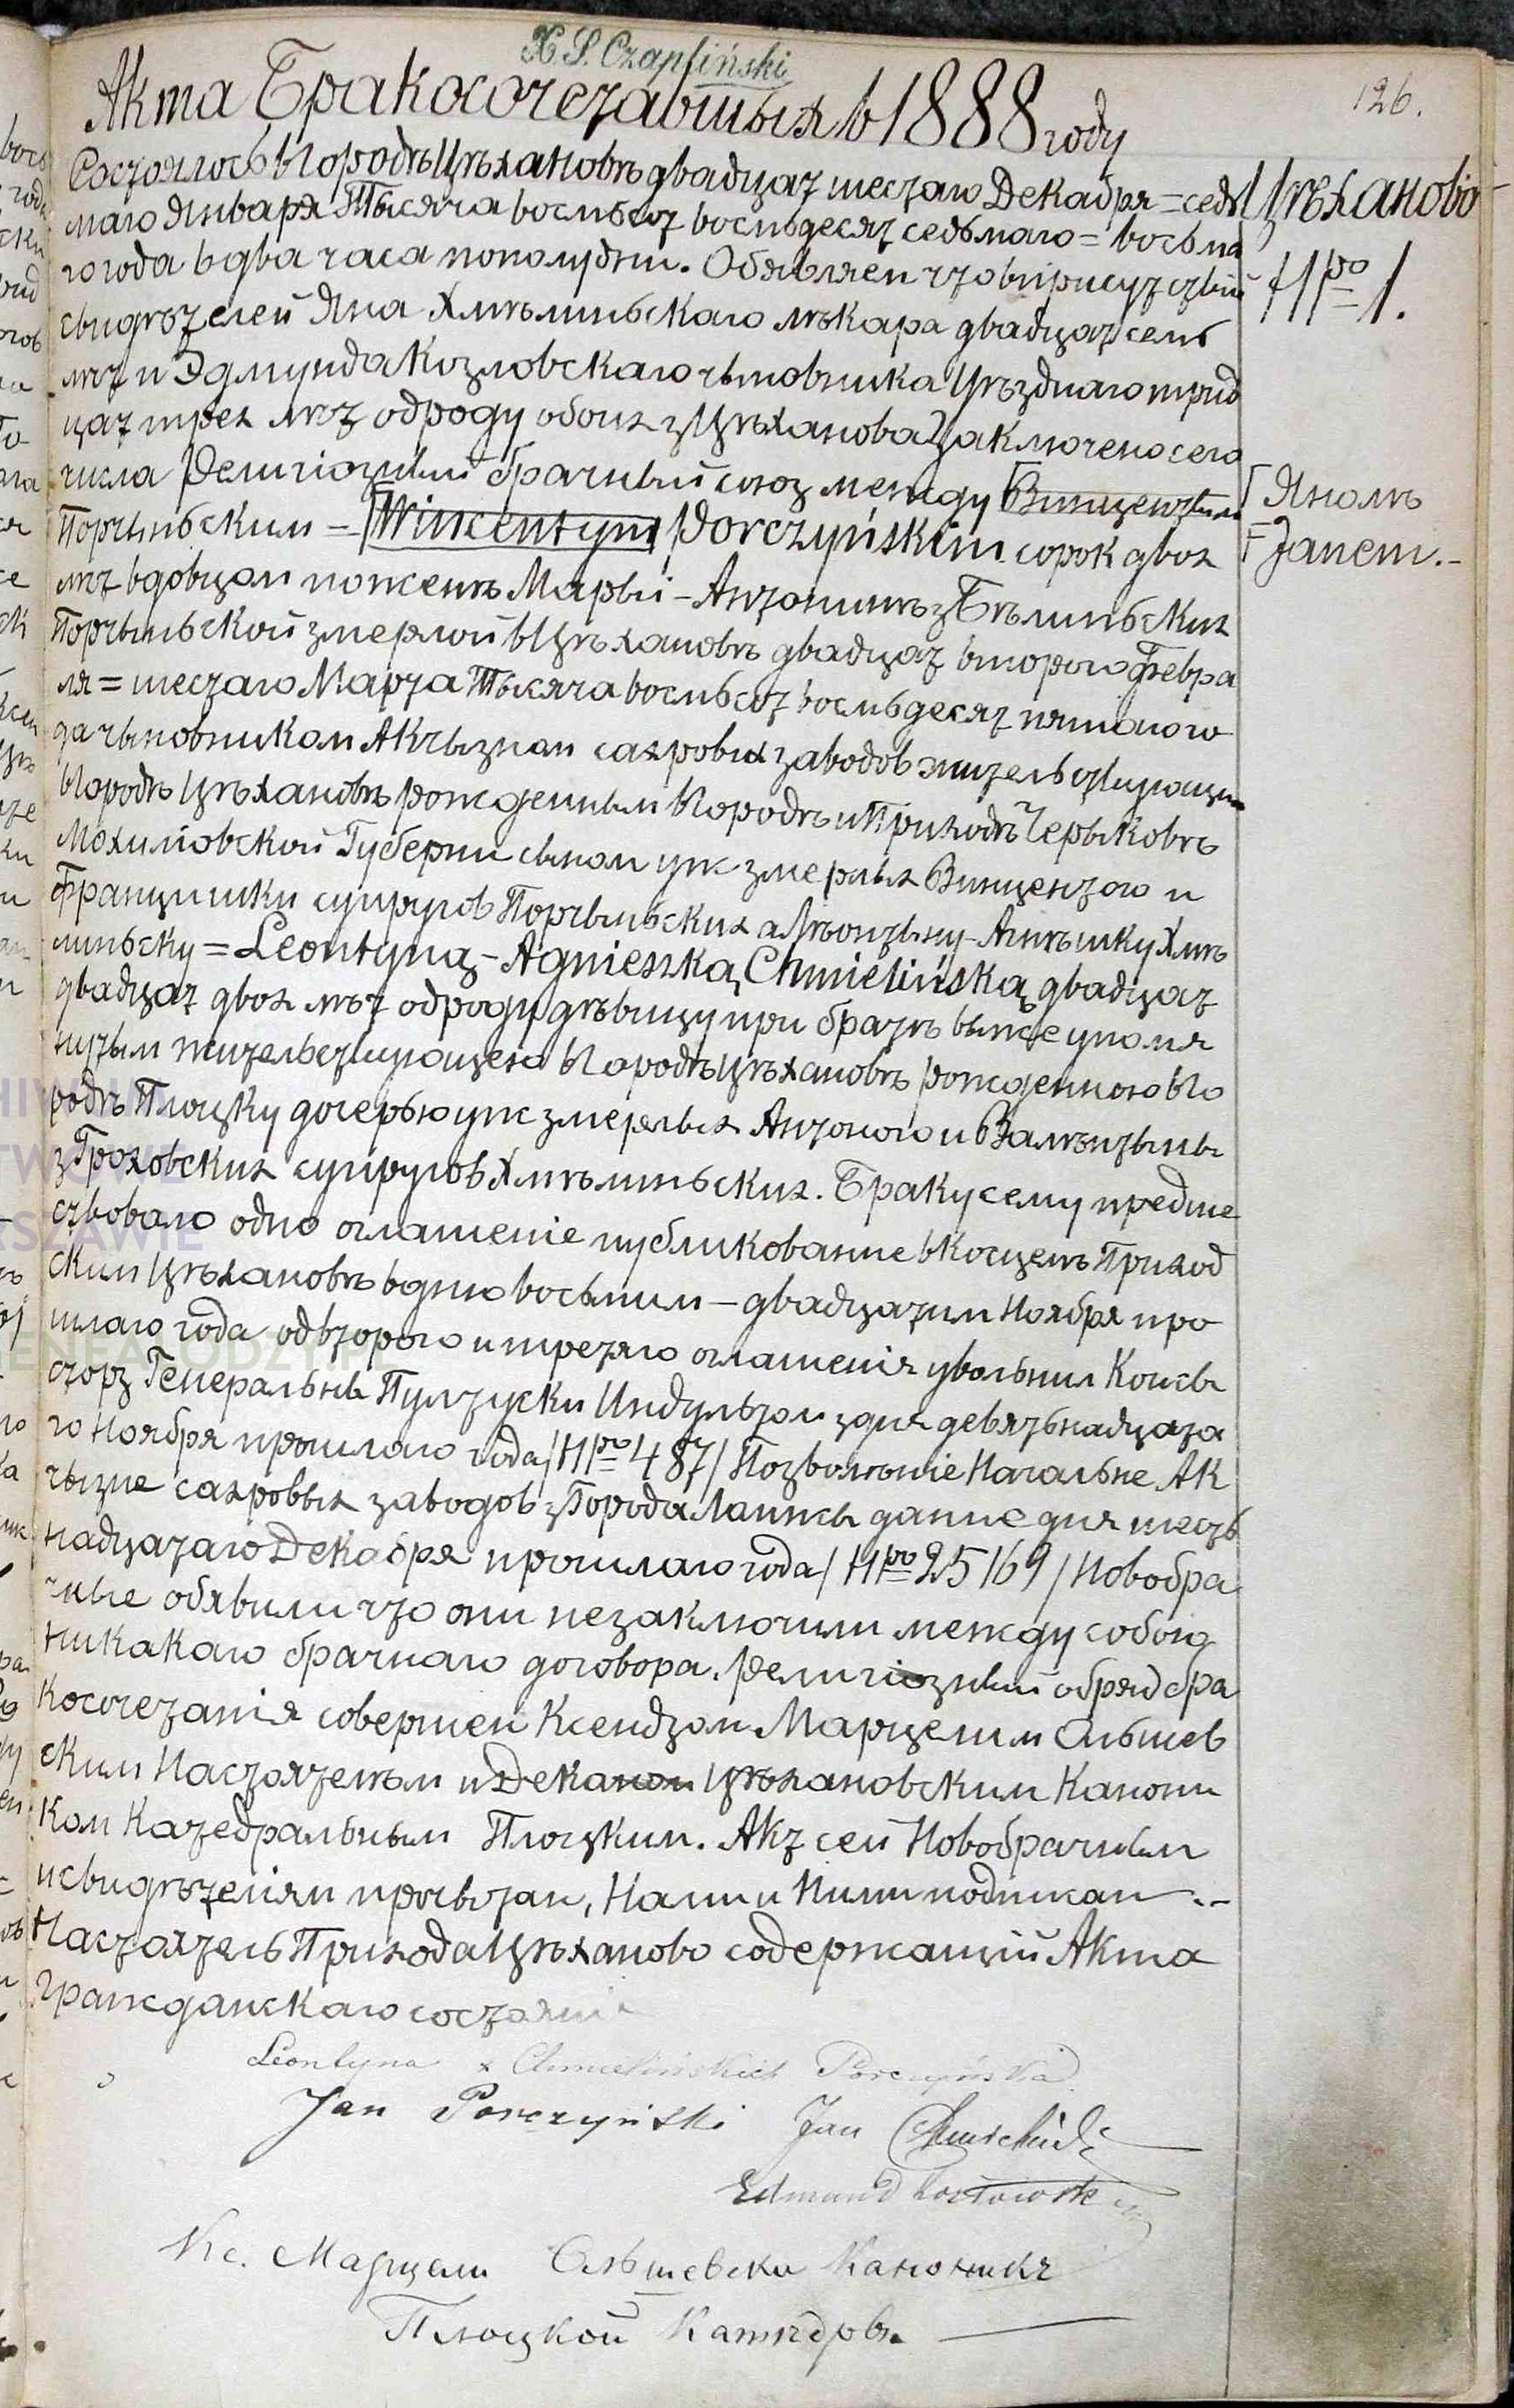 X. S. Czapliński
126.
Акта Бракосочезавшых в 1888 году
Состоялось вгородѣ Цѣхановѣ двадцат шестаго Декабря = седь
Цѣханово
маго Января Тысяча восмьсот восмьдесят седьмаго = восьма
го года в два часа пополудни. Обявляем что вприсутствіи
Нро 1.
свидѣтелей Яна Хмѣлиньскаго лѣкара двадцат семь
лѣт и Эдмунда Козловскаго чыновника Цѣзднаго трид
цат трех лѣт одроду обоих з Цѣханова Заключено сего
числа Религіозный брачный союз между Винцентым
Яномъ
Порчыньским = Wincentym Porczyńskim сорок двох
Janem.-
лѣт вдовцом поженѣ Марыи - Антонинѣ з Бѣлиньских
Порчыньской змерлой в Цѣхановѣ двадцат второго Февра
ля = шестаго Марта Тысяча восмьсот восмьдесят пятаго го
да чыновником Акчызнам сахровых заводов жительствующим
вгородѣ Цѣхановѣ рожденным вгородѣ и Приходѣ Черыковѣ
Мохиловской Губернии сыном уж змерлых Винцентого и
Францишки супругов Порчыньских а Лѣонтыну - Агнѣшку Хмѣ
линьску = Leontyną - Agnieszką Chmielińską двадцат
двадцат двох лѣт одроду дѣвицу при братѣ выже упомя
нутым жительствующею вгородѣ Цѣхановѣ рожденною вго
родѣ Плоцку дочерью уж змерлых Антоного и Валѣнтыны
з Гроховских супругов Хмѣлиньских. Браку сему предше
ствовало одно оглашеніе публикованне вкосцелѣ Приход
ским Цѣхановѣ вдню восьмым - двадцатым Ноября про
шлаго года одвторого и третяго оглашенія увольнил Консы
сторз Генеральны Пултуски Индультом здня девятьнадцата
го Ноября прошлаго года / Нро 487 / Позволѣніе Начальне Ак
чызне сахровых заводов з Города Ломжы данне дня шесть
надцатаго Декабря прошлаго года / Нро 25169 / Новобра
чные обявили что они незаключили между собою
никакаго брачнаго договора. Религіозный обряд бра
косочезанія совершен Ксендзом Марцелим Ольшев
ским Настоятелѣм и Деканом Цѣхановским Канони
ком Катедральным Плоцким. Акт сей Новобрачным
и свидѣтелям прочытан, Нами и Ними подписан.-
Настоятель Прихода Цѣханово содержащій Акта
Гражданскаго состоянія
Leontyna z Chmielińskich Porczyńska
Jan Porczyński Jan Chmieliński
Edmund Kozłowski
Кс. Марцели Ольшевски Каноникъ
Плоцкой Катедры.